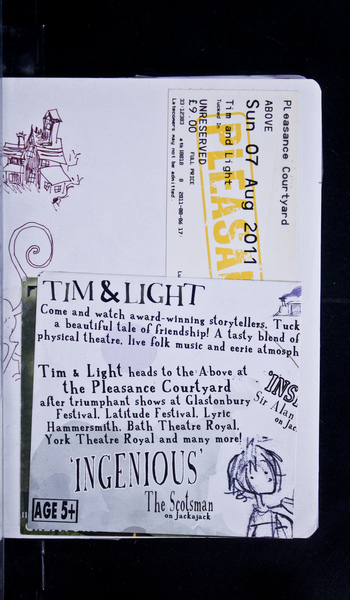 Pleasance Courtyard
ABOVE
Sun 07 Aug 2011
Tim and Light
Tucked In
UNRESERVED
£9.00 FULL PRICE
Latecomers may not be admitted
PLEASAN
TIM & LIGHT
Come and watch award-winning storytellers, Tuck
a beautiful tale of friendship! A tasty blend of
physical theatre, live folk music and eerie atmosph
Tim & Light heads to the Above at
the Pleasance Courtyard
after triumphant shows at Glastonbury
Festival, Latitude Festival, Lyric
Hammersmith, Bath Theatre Royal,
York Theatre Royal and many more!
'INGENIOUS'
The Scotsman
on Jackajack
'INS
Sir Alan
on Jac
AGE 5+